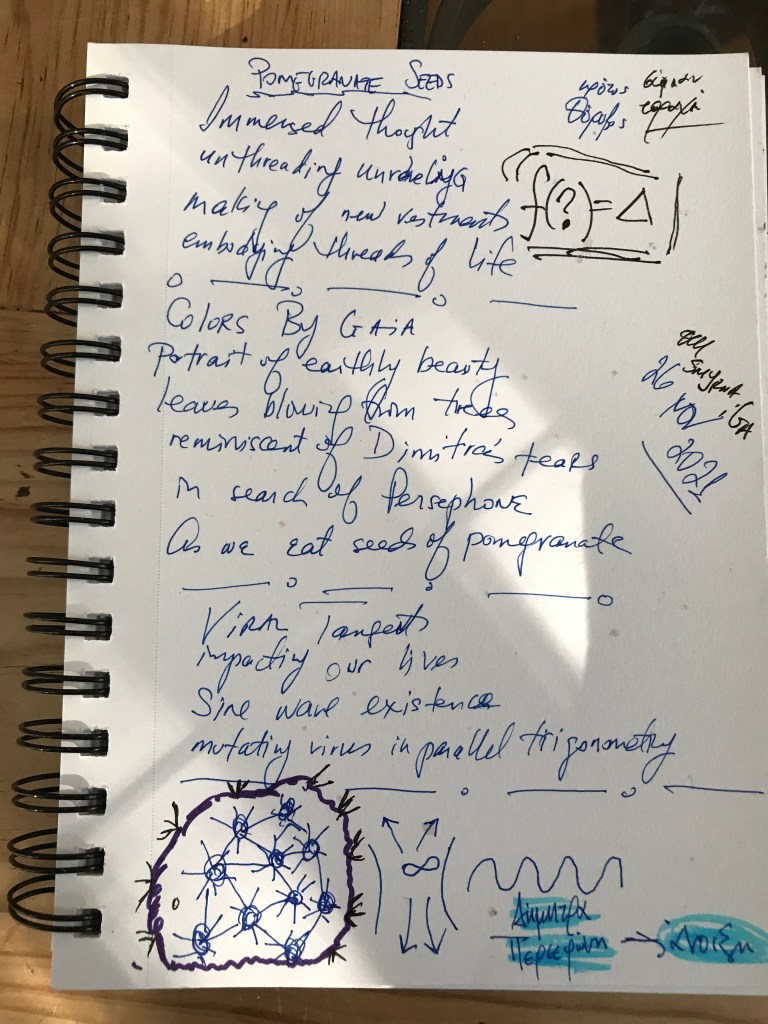 POMEGRANATE SEEDS
Immersed thought
unthreading unraveling
making of new vestments
embodying threads of life
f(?) = Δ
COLORS BY GAIA
Portrait of earthly beauty
leaves blowing from trees
reminiscent of Dimitra's tears
in search of Persephone
As we eat seeds of pomegranate
SMYRNA, GA
26 Nov 2021
Viral Tangents
impacting our lives
Sine wave existence
mutating virus in parallel trigonometry
∞
Δήμητρα
Περσεφόνη → Άνοιξη